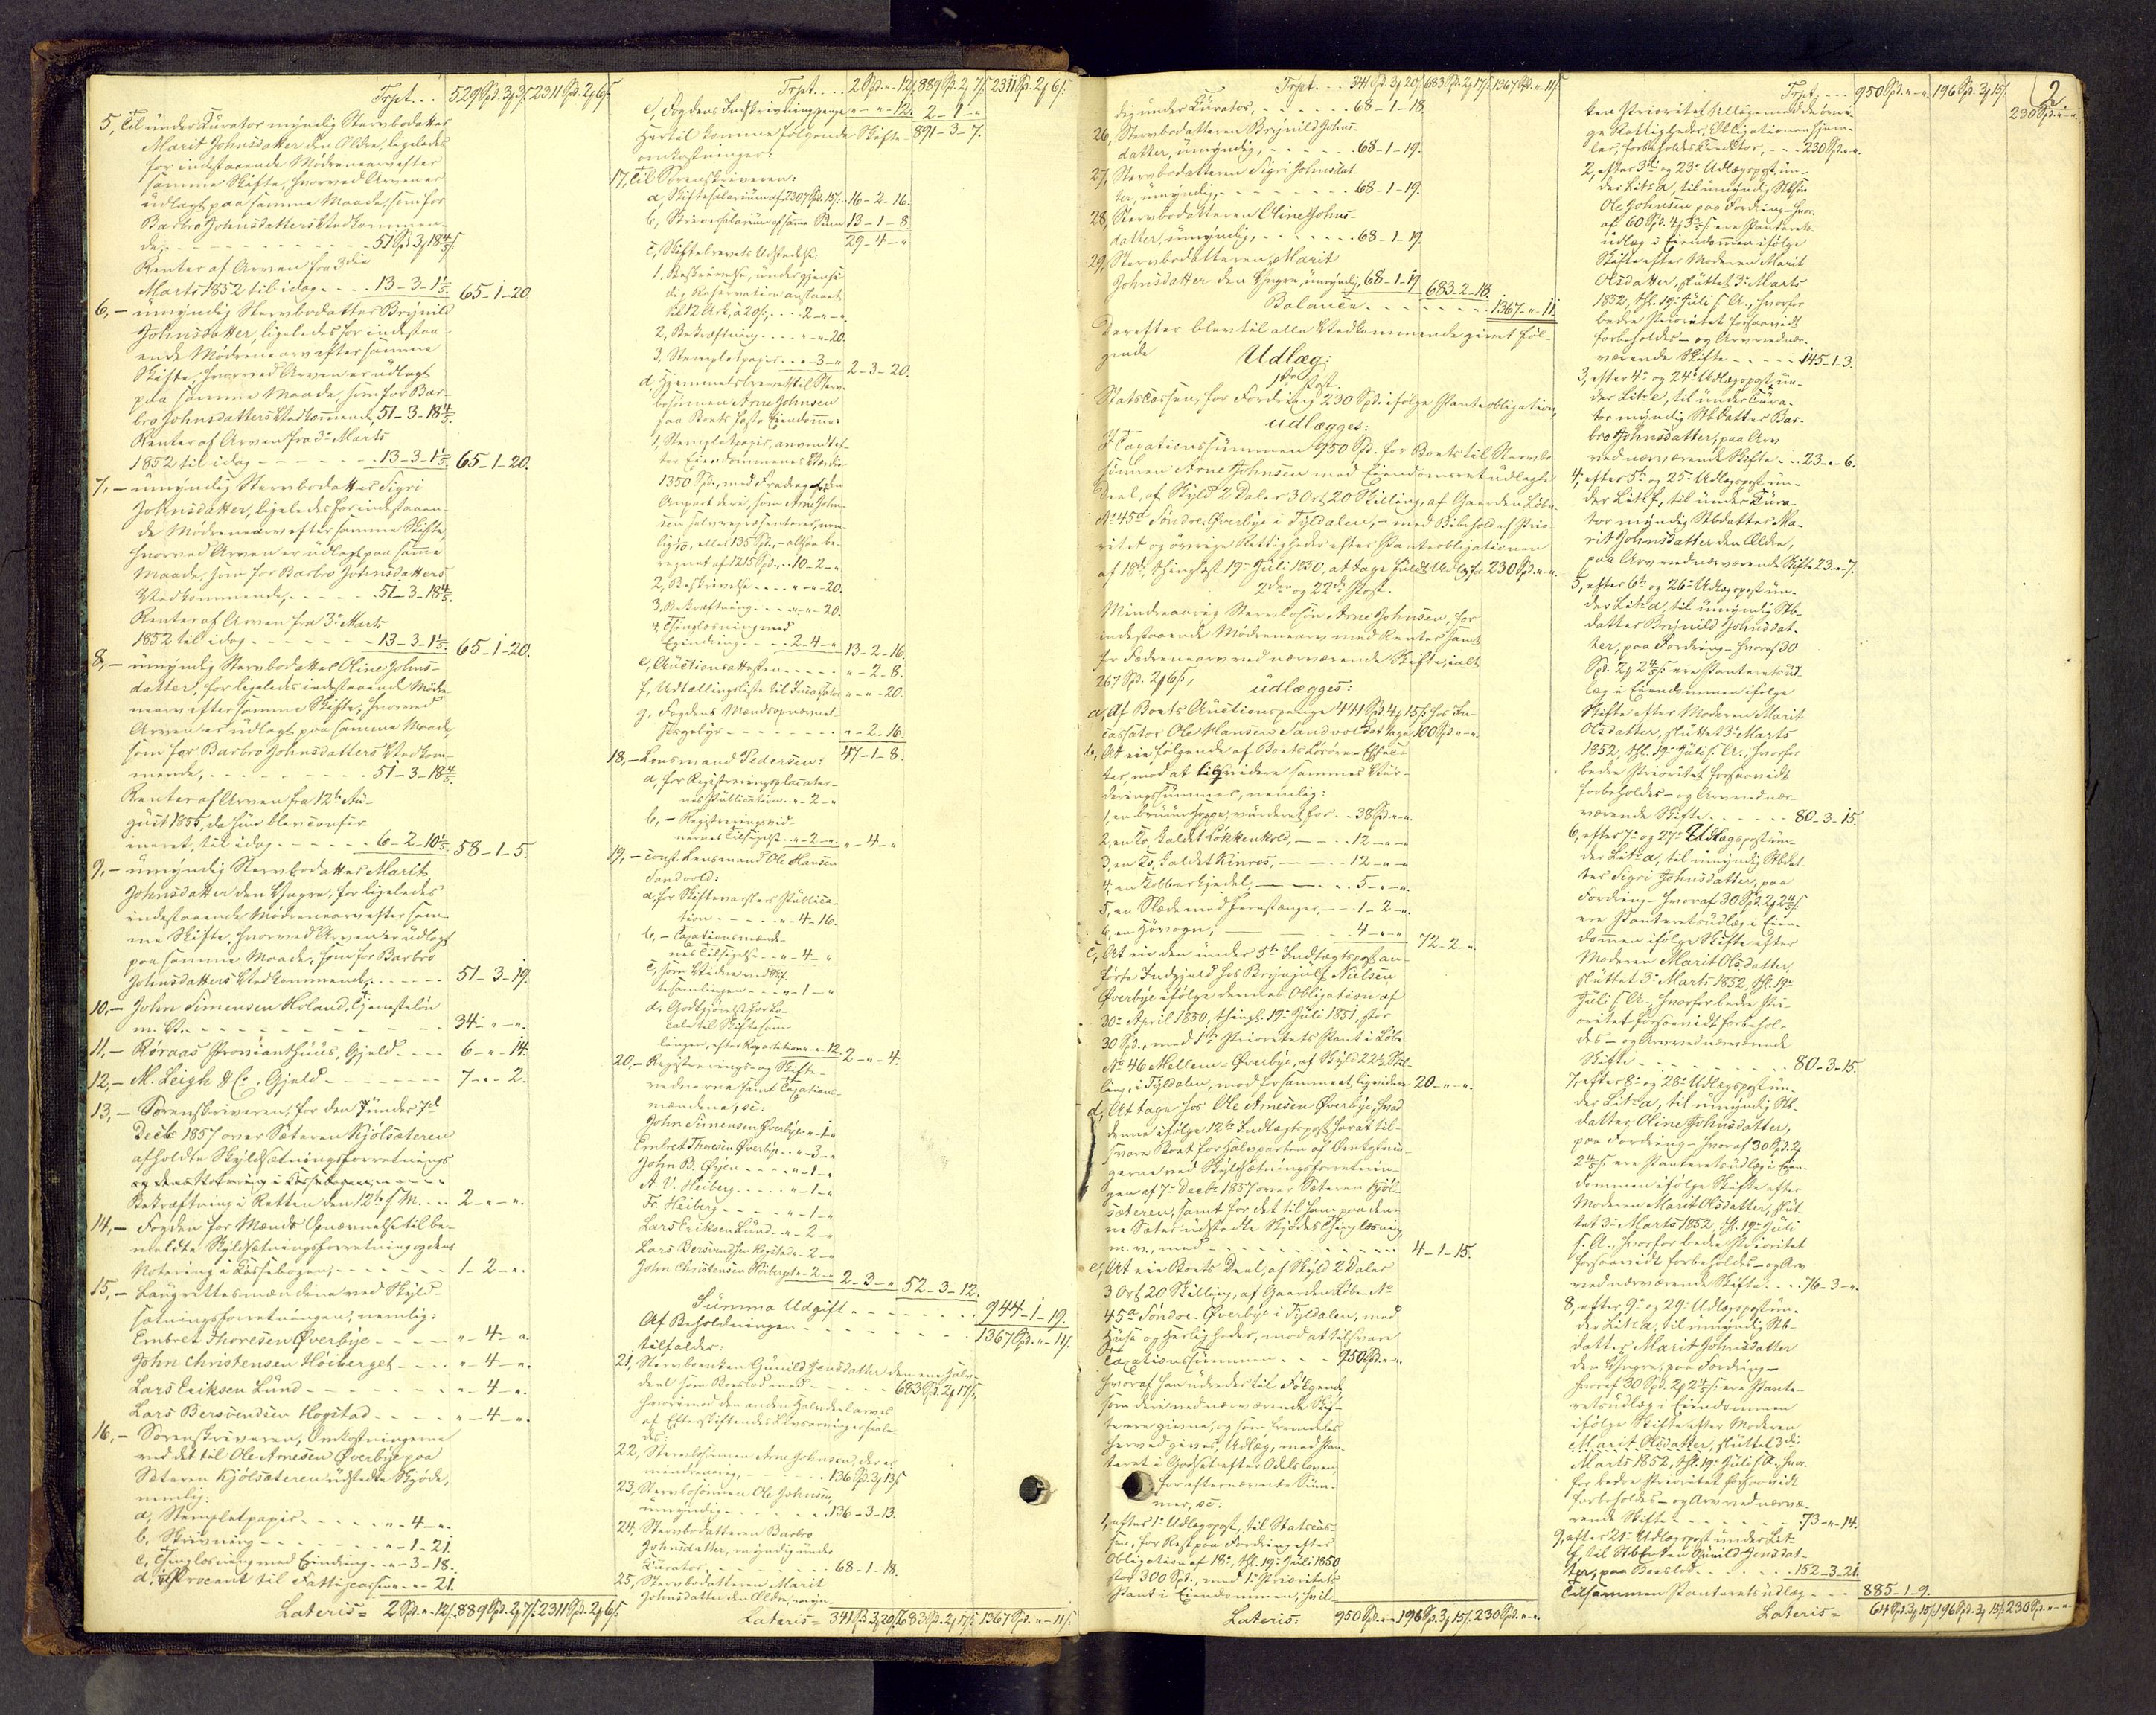 Trpt... 529 Spd. 3 3/5 2311 Spd. 2 6/.
5, Til under Kurator myndig Stervbodatter
Marit Johnsdatter den Ældre, ligeledes
for indestaaende Mødrenearv efter
samme Skifte, hvorved Arven er
udlagt paa samme Maade, som for
Barbro Johnsdatters Vedkommen-
de, - - - 51 Spd. 3 18 4/5.
Renter af Arven fra 3die
Marts 1852 til idag - - - 13-3-1 1/5. 65-1-20.
6, - umyndig Stervbodatter Brynild
Johnsdatter, ligeledes for indestaa-
ende Mødrenearv efter samme
Skifte, hvorved Arven er udlagt
paa samme Maade, som for Bar-
bro Johnsdatters Vedkommende, 51-3-18 4/5.
Renter af Arven fra 3die Marts
1852 til idag - - - 13-3-1 1/5. 65-1-20.
7, - umyndig Stervbodatter Sigri
Johnsdatter, ligeledes for indestaaen-
de Mødrenearv efter samme Skifte,
hvorved Arven er udlagt paa samme
Maade, som for Barbro Johnsdatters
Vedkommende, - - - 51-3-18 4/5.
Renter af Arven fra 3die Marts
1852 til idag - - - 13-3-1 1/5. 65-1-20.
8, - umyndig Stervbodatter Oline Johns-
datter, for ligeledes indestaaende Mødre-
nearv efter samme Skifte, hvorved
Arven er udlagt paa samme Maade
som for Barbro Johnsdatters Vedkom-
mende, - - - 51-3-18 4/5.
Renter af Arven fra 12te Au-
gust 1855, da hun blev confir-
meret, til idag - - - 6-2-10 1/5. 58-1-5.
9, - umyndig Stervbodatter Marit
Johnsdatter den Yngre, for ligeledes
indestaaende Mødrenearv efter sam-
me Skifte, hvorved Arven er udlagt
paa samme Maade, som for Barbro
Johnsdatters Vedkommende, - - - 51-3-19.
10, - John Simensen Holand, Tjenesteløn
m. V. - - - 34-"-".
11, - Røraas Provianthuus, Gjeld - - - 6-"-14.
12, - M. Leigh & Co., Gjeld - - - 7-"-2.
13, - Sorenskriveren, for den under 7de
Decbr 1857 over Sæteren Kjølsæteren
afholdte Skyldsætningsforretnings
Bekræftning i Retten den 12te s. M. - - 2-"-".
14, - Fogden for Mænds Opnævnelse til be-
meldte Skyldsætningsforretning og dens
Notering i Cassebogen, - - - 1-2-".
15, - Laugrettesmændene ved Skyld-
sætningsforretningen, nemlig:
Embret Thoresen Øverbye - - - "-4-".
John Christensen Høiberget - - - "-4-".
Lars Eriksen Lund - - - "-4-".
Lars Bersvendsen Hogstad - - - "-4-".
16, - Sorenskriveren, Omkostningerne
ved det til Ole Arnesen Øverbye paa
Sæteren Kjølsæteren udstedte Skjøde,
nemlig:
a, Stempletpapir - - - "-4-".
b, Skrivning - - - "-1-21.
c, Thinglæsning med Eiendring - "-3-18.
d, Procent til Fattigcassen - "-"-21.
Lateris = 2 Spd. "-12/. 889 Spd. 2 7/. 2311 Spd. 2 6/.
Trpt.... 2 Spd. "-12/. 889 Spd. 2 7/. 2311 Spd. 2 6/.
e, Fogdens Indskrivningspenge "-"-12. 2-1-"
Hertil komme følgende Skifte- 891-3-7.
omkostninger:
17, Til Sorenskriveren:
a, Skiftesalarium af 2307 Spd. 15/. 16-2-16.
b, Skriversalarium af samme Sum 13-1-8.
29-4-"
c, Skiftebrevets Udstedelse:
1, Beskrivelse, under gjensi-
dig Reservation anslaaet
til 12 Ark, a 20/., - - 2-"-".
2, Bekræftning - - - "-"-20.
3, Stempletpapir - - "-3-" 2-3-20.
d, Hjemmelsbrevet til Sterv-
bosønnen Arne Johnsen
paa Boets faste Eiendomme:
1, Stempletpapir, anvendt ef-
ter Eiendommenes Værdie
1350 Spd., med Fradrag for den
Anpart deri, som Arne John-
sen selv repræsenterer, nem-
lig 1/10, eller 135 Spd., - altsaa be-
regnet af 1215 Spd. - - 10-2-"
2, Beskrivelse - - - "-"-20.
3, Bekræftning - - - "-"-20.
4, Thinglæsning med
Eiendring - - - 2-4-" 13-2-16.
e, Auctionsattesten - - - "-2-8.
f, Udtællingsliste til Incassator "-"-20.
g, Fogdens Mændsopnævnel-
sesgebyr - - - "-2-16.
47-1-8.
18, - Lensmand Pedersen:
a, for Registreringsplacater-
nes Publication - "-2-"
b, - Registreringsvid-
nernes Tilsigelse - "-2-" "-4-"
19, - const. Lensmand Ole Hansen
Sandvold:
a, for Skiftevarslets Publica-
tion - - - "-4-16.
b, - Taxationsmænde-
nes Tilsigelse - - "-4-"
c, som Vidne ved Skif-
tesamlingen - - - "-1-"
d, Godtgjørelse for Lo-
cale til Skiftesam-
lingen, efter Repartition "-"-12. 2-"-4.
20, - Registrerings- og Skifte-
vidnerne samt Taxations-
mændene, sc:
John Simensen Øverbye - "-1-"
Embret Thoresen Øverbye - "-3-"
John B. Øyen - - - "-1-"
A. V. Heiberg - - - "-1-"
Fr. Heiberg - - - "-1-"
Lars Eriksen Lund - "-2-"
Lars Bersvendsen Hogstad "-2-"
John Christensen Høiberget "-2-" 2-3-" 52-3-12.
Summa Udgift - - - 944-1-19.
Af Beholdningen - - - 1367 Spd. "-11/.
tilfalder:
21, Stervboenken Gunild Jensdatter den ene Halv-
deel som Boeslod med - - - 683 Spd. 2 17/.
hvorimod den anden Halvdeel arves
af Efterskiftendes Livsarvinger saale-
des:
22, Stervbosønnen Arne Johnsen, der er
mindreaarig, - - - 136 Spd. 3 13/.
23, Stervbosønnen Ole Johnsen,
umyndig - - - 136-3-13.
24, Stervbodatteren Barbro
Johnsdatter, myndig under
Kurator, - - - 68-1-18.
25, Stervbodatteren Marit
Johnsdatter den Ældre, myn-
Lateris = 341 Spd. 3 20/. 683 Spd. 2 17/. 1367 Spd. "-11/.
Trpt... 341 Spd. 3 20/. 683 Spd. 2 17/. 1367 Spd. "-11/.
dig under Kurator, - - - 68-1-18.
26, Stervbodatteren Brynild Johns-
datter, umyndig, - - - 68-1-19.
27, Stervbodatteren Sigri Johnsdat-
ter, umyndig, - - - 68-1-19.
28, Stervbodatteren Oline Johns-
datter, umyndig, - - - 68-1-19.
29, Stervbodatteren Marit
Johnsdatter den Yngre, umyndig, 68-1-19. 683-2-18.
Balance - - - 1367-"-11.
Derefter blev til alle Vedkommende givet føl-
gende Udlæg:
1ste Post.
Statscassen, for Fordring 230 Spd. ifølge Panteobligation,
udlægges:
I Taxationssummen 950 Spd. for Boets til Stervbo-
sønnen Arne Johnsen med Eiendomsret udlagte
Deel, af Skyld 2 Daler 3 Ort 20 Skilling, af Gaarden Løbe-
No 45a Søndre-Øverbye i Tyldalen, - med Bibehold af Prio-
ritet og øvrige Rettigheder efter Panteobligationen
af 18de, thinglæst 19de Juli 1850, at tage fuldt Udlæg for 230 Spd. "-".
2den og 22de Post.
Mindreaarig Stervbosøn Arne Johnsen, for
indestaaende Mødrenearv med Renter samt
for Fædrenearv ved nærværende Skifte, ialt
267 Spd. 2 6/., udlægges:
a, Af Boets Auctionspenge 441 Spd. 4 15/. hos In-
cassator Ole Hansen Sandvold at tage 100 Spd. "-".
b, At eie følgende af Boets Løsøre-Effec-
ter, mod at liqvidere sammes Vur-
deringssummer, nemlig:
1, en bruun Hoppe, vurderet for - - 38 Spd. "-".
2, en Ko, kaldet Løkkenkold, - - - 12-"-"
3, en Ko, kaldet Kinros, - - - 12-"-"
4, en Kobberkjedel, - - - 5-"-".
5, en Slæde med Jernstænger, - - 1-2-".
6, en Høvogn, - - - 4-"-" 72-2-".
c, At eie den under 5te Indtægtspost an-
førte Indgjeld hos Brynjulf Nielsen
Øverbye ifølge dennes Obligation af
30te April 1850, thingl. 19de Juli 1851, stor
30 Spd., med 1ste Prioritets Pant i Løbe-
No 46 Mellem-Øverbye, af Skyld 22 1/2 Skil-
ling, i Tyldalen, mod for sammen at liqvidere 20-"-".
d, At tage hos Ole Arnesen Øverbye, hvad
denne ifølge 12te Indtægtspost har at til-
svare Boet for Halvparten af Omkostnin-
gerne ved Skyldsætningsforretnin-
gen af 7de Decbr 1857 over Sæteren Kjøl-
sæteren, samt for det til ham paa den-
ne Sæter udstedte Skjødes Thinglæsning
m. v., med - - - 4-1-15.
e, At eie Boets Deel, af Skyld 2 Daler
3 Ort 20 Skilling, af Gaarden Løbe-No
45a Søndre-Øverbye i Tyldalen, med
Huse og Herligheder, mod at tilsvare
Taxationssummen - - - 950 Spd. "-".
hvoraf han udreder til Følgende
som deri ved nærværende Skif-
te ere givne, og som fremdeles
herved gives, Udlæg, med Pan-
teret i Godset efter Odelsloven,
for efternævnte Sum-
mer, sc:
1, efter 1ste Udlægspost, til Statscas-
sen, for Restpaa Fordring efter
Obligation af 18de, thl. 19de Juli 1850,
stor 300 Spd., med 1ste Prioritets
Pant i Eiendommen, hvil-
Lateris: 950 Spd. "-" 196 Spd. 3 15/. 230 Spd. "-".
2.
Trpt.... 950 Spd. "-". 196 Spd. 3 15/. 230 Spd. "-".
ken Prioritet tilligemed de øvri-
ge Rettigheder, Obligationen hjem-
ler, forbeholdes Creditor, - - 230 Spd. "-".
2, efter 3die og 23de Udlægspost, un-
der Litr. a, til umyndig Stbsøn
Ole Johnsen paa Fordring - hvor-
af 60 Spd. 4 3 3/5/. ere Panterets-
udlæg i Eiendommen ifølge
Skifte efter Moderen Marit
Olsdatter, sluttet 3die Marts
1852, thl. 19de Juli s. A., hvorfor
bedre Prioritet forsaavidt
forbeholdes - og Arv ved nær-
værende Skifte - - - 145-1-3.
3, efter 4de og 24de Udlægspost un-
der Litr. e, til under Kura-
tor myndig Stbdatter Bar-
bro Johnsdatter, paa Arv
ved nærværende Skifte - - 23-"-6.
4, efter 5te og 25de Udlægspost un-
der Litr. f, til under Kura-
tor myndig Stbdatter Ma-
rit Johnsdatter den Ældre,
paa Arv ved nærværende Skifte 23-"-7.
5, efter 6te og 26de Udlægspost un-
der Litr. a, til umyndig Stb-
datter Brynild Johnsdat-
ter, paa Fordring - hvoraf 30
Spd. 2 2 4/5/. ere Panteretsud-
læg i Eiendommen ifølge
Skifte efter Moderen Marit
Olsdatter, sluttet 3die Marts
1852, thl. 19de Juli s. A., hvorfor
bedre Prioritet forsaavidt
forbeholdes - og Arv ved nær-
værende Skifte - - - 80-3-15.
6, efter 7de og 27de Udlægspost un-
der Litr. a, til umyndig Stbdat-
ter Sigri Johnsdatter, paa
Fordring - hvoraf 30 Spd. 2 2 4/5/.
ere Panteretsudlæg i Eien-
dommen ifølge Skifte efter
Moderen Marit Olsdatter,
sluttet 3die Marts 1852, thl. 19de
Juli s. A., hvorfor bedre Pri-
oritet forsaavidt forbehol-
des - og Arv ved nærværende
Skifte - - - 80-3-15.
7, efter 8de og 28de Udlægspost un-
der Litr. a, til umyndig Stb-
datter Oline Johnsdatter,
paa Fordring - hvoraf 30 Spd. 2
2 4/5/. ere Panteretsudlæg i Eien-
dommen ifølge Skifte efter
Moderen Marit Olsdatter, slut-
tet 3die Marts 1852, thl. 19de Juli
s. A., hvorfor bedre Prioritet
forsaavidt forbeholdes - og Arv
ved nærværende Skifte - - 76-3-".
8, efter 9de og 29de Udlægspost un-
der Litr. a, til umyndig Stb-
datter Marit Johnsdatter
den Yngre, paa Fordring -
hvoraf 30 Spd. 2 2 4/5/. ere Pante-
retsudlæg i Eiendommen
ifølge Skifte efter Moderen
Marit Olsdatter, sluttet 3die
Marts 1852, thl. 19de Juli s. A., hvor-
for bedre Prioritet forsaavidt
forbeholdes - og Arv ved nærvæ-
rende Skifte - - - 73-"-14.
9, efter 21de Udlægspost under Litr.
f, til StbEnken Gunild Jensdat-
ter, paa Boeslod - - - 152-3-21.
Tilsammen Panteretsudlæg - - 885-1-9.
Lateris = 64 Spd. 3 15/. 196 Spd. 3 15/. 230 Spd. "-".